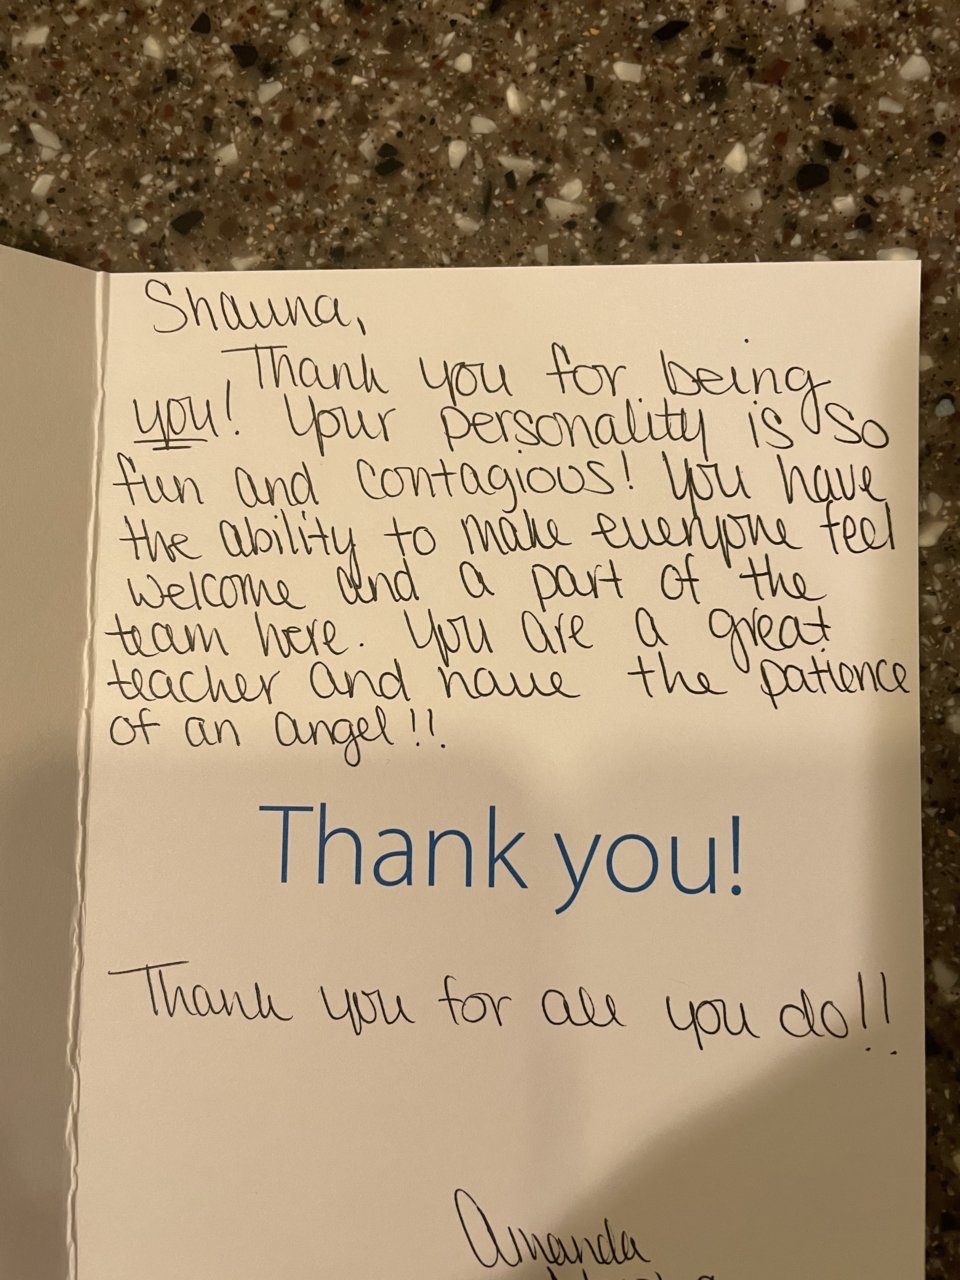 Shauna,
Thank you for being
you! Your personality is so
fun and contagious! You have
the ability to make everyone feel
welcome and a part of the
team here. You are a great
teacher and have the patience
of an angel!!
Thank you!
Thank you for all you do!!
Amanda